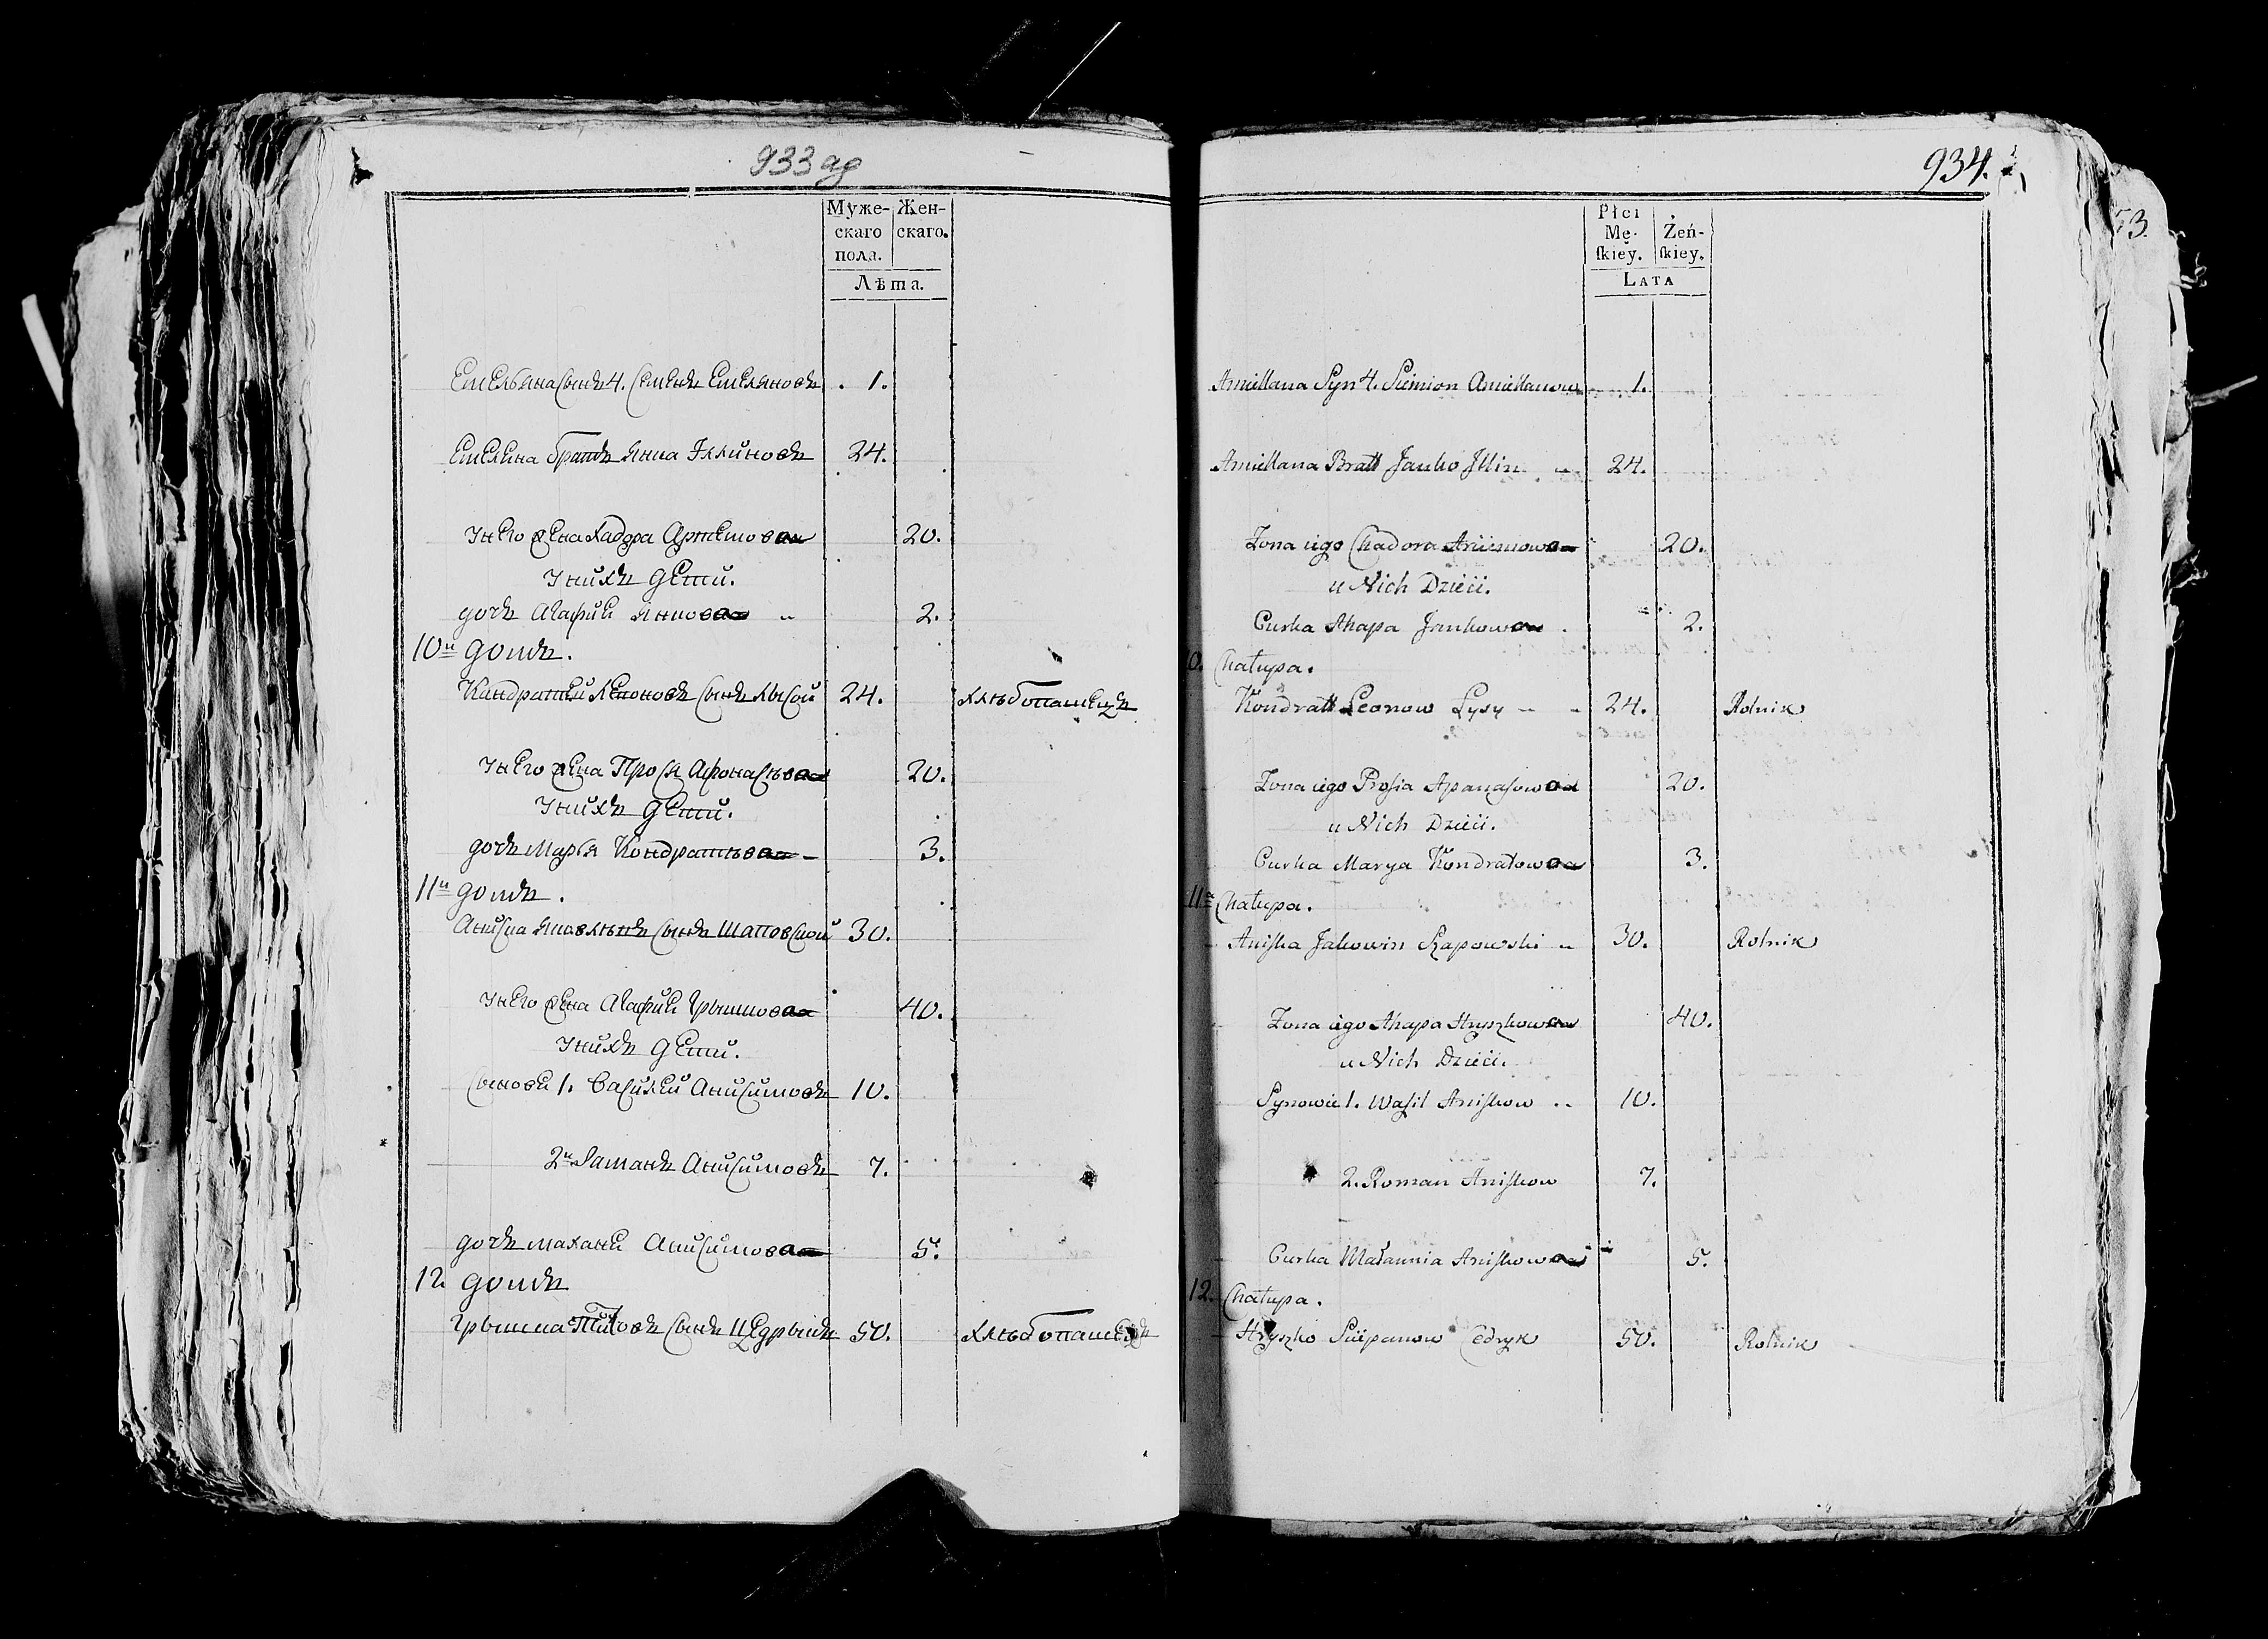 933 ад
Муже-
скаго
пола.
Жен-
скаго.
Лѣта.
Емельяна сынъ 4. Семенъ Емеляновъ 1.
Емеляна братъ Янка Иллиновъ 24.
У него жена Хадора Артемова 20.
У нихъ дети.
дочь Агафия Янкова 2.
10й домъ.
Кандратей Леоновъ сынъ Лысой 24. хлѣбопашецъ
У него жена Прося Афонасьва 20.
У нихъ дети.
дочь Марья Кондратьва 3.
11й домъ.
Аниска Яковлевъ сынъ Шаповской 30.
У него жена Агафия Грышкова 40.
У нихъ дети.
Сыновя 1. Василей Анисимовъ 10.
2й Раманъ Анисимовъ 7.
дочь Малания Анисимова 5.
12 домъ
Грышка сынъ Цедрыкъ 50. хлѣбопашецъ
934.
53.
Płci
Mę-
ſkiey.
Żeń-
ſkiey.
LATA
Amiellana Syn 4. Siemion Amiellanow 1.
Amiellana Bratt Janko Illin 24.
Żona iego Chadora Artiemowa 20.
u Nich Dzieci.
Curka Ahapa Jankowa 2.
0. Chałupa.
Kondratt Leonow Łysy 24. Rolnik
Żona iego Prosia Apanaſowa 20.
u Nich Dzieci.
Curka Marya Kondratowa 3.
11a Chałupa.
Aniſka Jakowin Szapowski 30. Rolnik
Żona iego Ahapa Hryszkowa 40.
u Nich Dzieci.
Synowie 1. Waſil Aniſkow 10.
2. Roman Aniſkow 7.
Curka Małannia Aniſkowa 5.
12. Chałupa.
Hryszko Sciepanow Cedryk 50. Rolnik